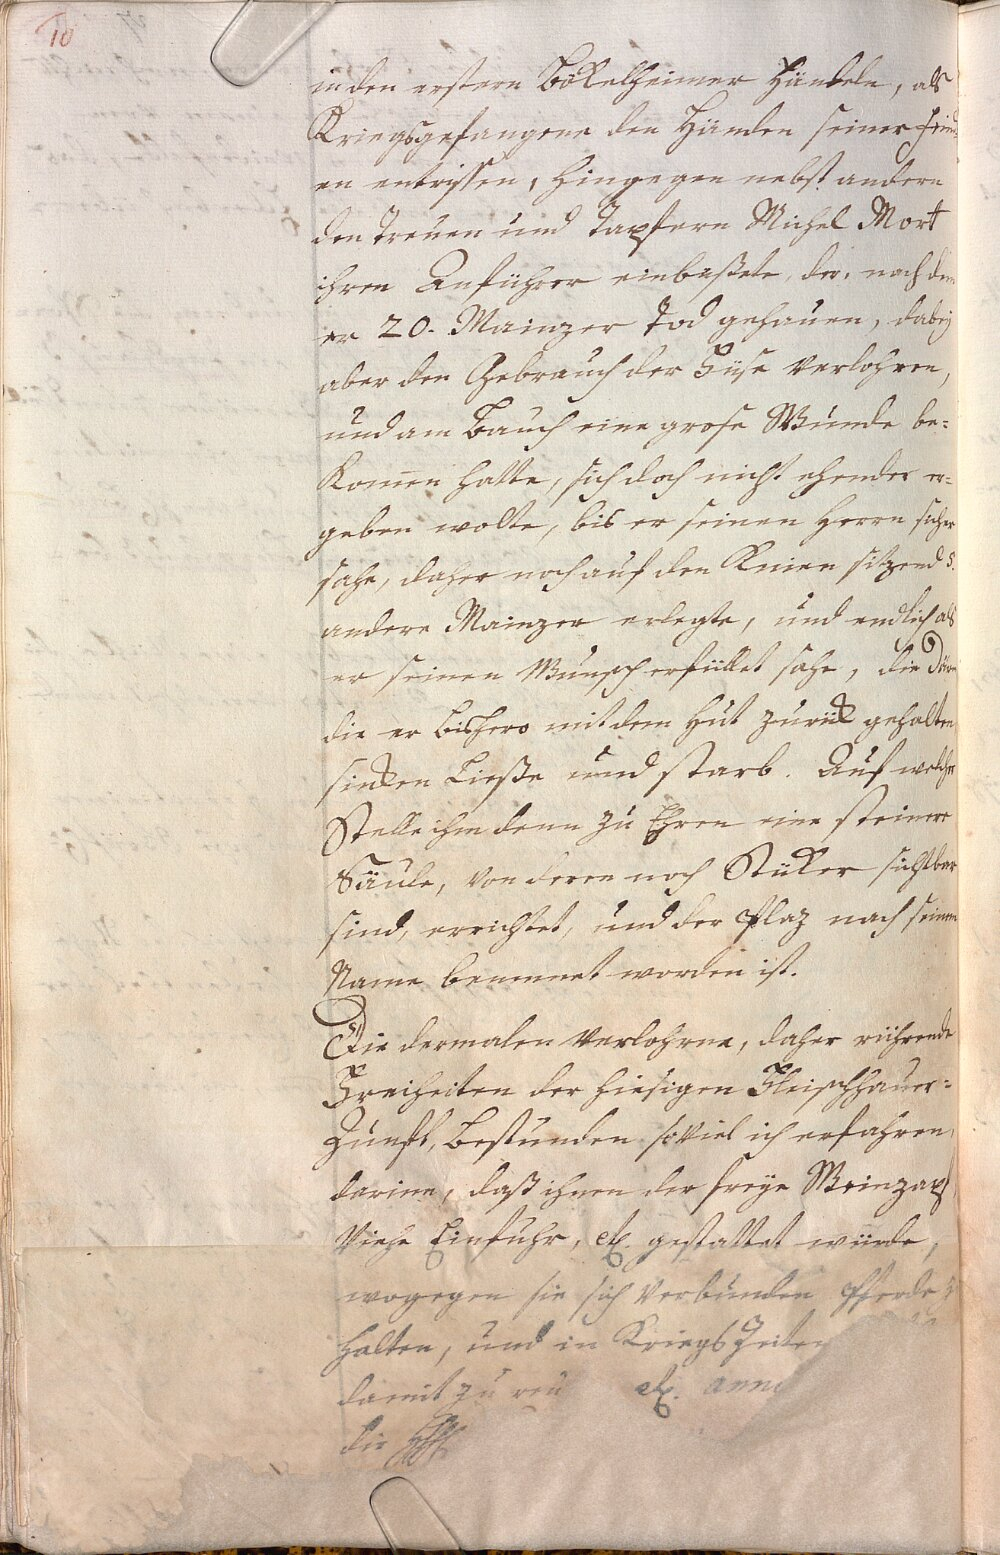 10
in den erstern Bökelheimer Händeln, als
Kriegsgefangene den Händen seiner Feind
en entrissen, hingegen nebst andern
den Treuen und Tapfern Michel Mort
ihren Anführer einbüßete, der, nach dem
er 20. Mainzer Tod gehauen, dabey
aber den Gebrauch der Füse verlohren,
und am Bauch eine grose Wunde be=
kommen hatte, sich doch nicht ehender er=
geben wolte, bis er seinen Herrn sicher
sahe, daher noch auf den Knien sitzend 5.
andere Mainzer erlegte, und endlich als
er seinen Wunsch erfüllet sahe, die Därm
die er bishero mit dem Hut zurük gehalten
sinken ließe und starb. Auf welcher
Stelle ihm denn zu Ehren eine steinere
Säule, von deren noch Stüker sichtbar
sind, errichtet, und der Plaz nach seinem
Name benennet worden ist.
Die dermalen verlohrne, daher rührende
Freiheiten der hiesigen Fleischhauer=
Zunft, bestunden soviel ich erfahren,
darinn, daß ihnen der freye Weinzapf,
Viehe Einfuhr, etc. gestattet würde,
wogegen sie sich verbunden Pferde z
halten, und in Kriegs Zeiten
damit zu reu etc. anno
die